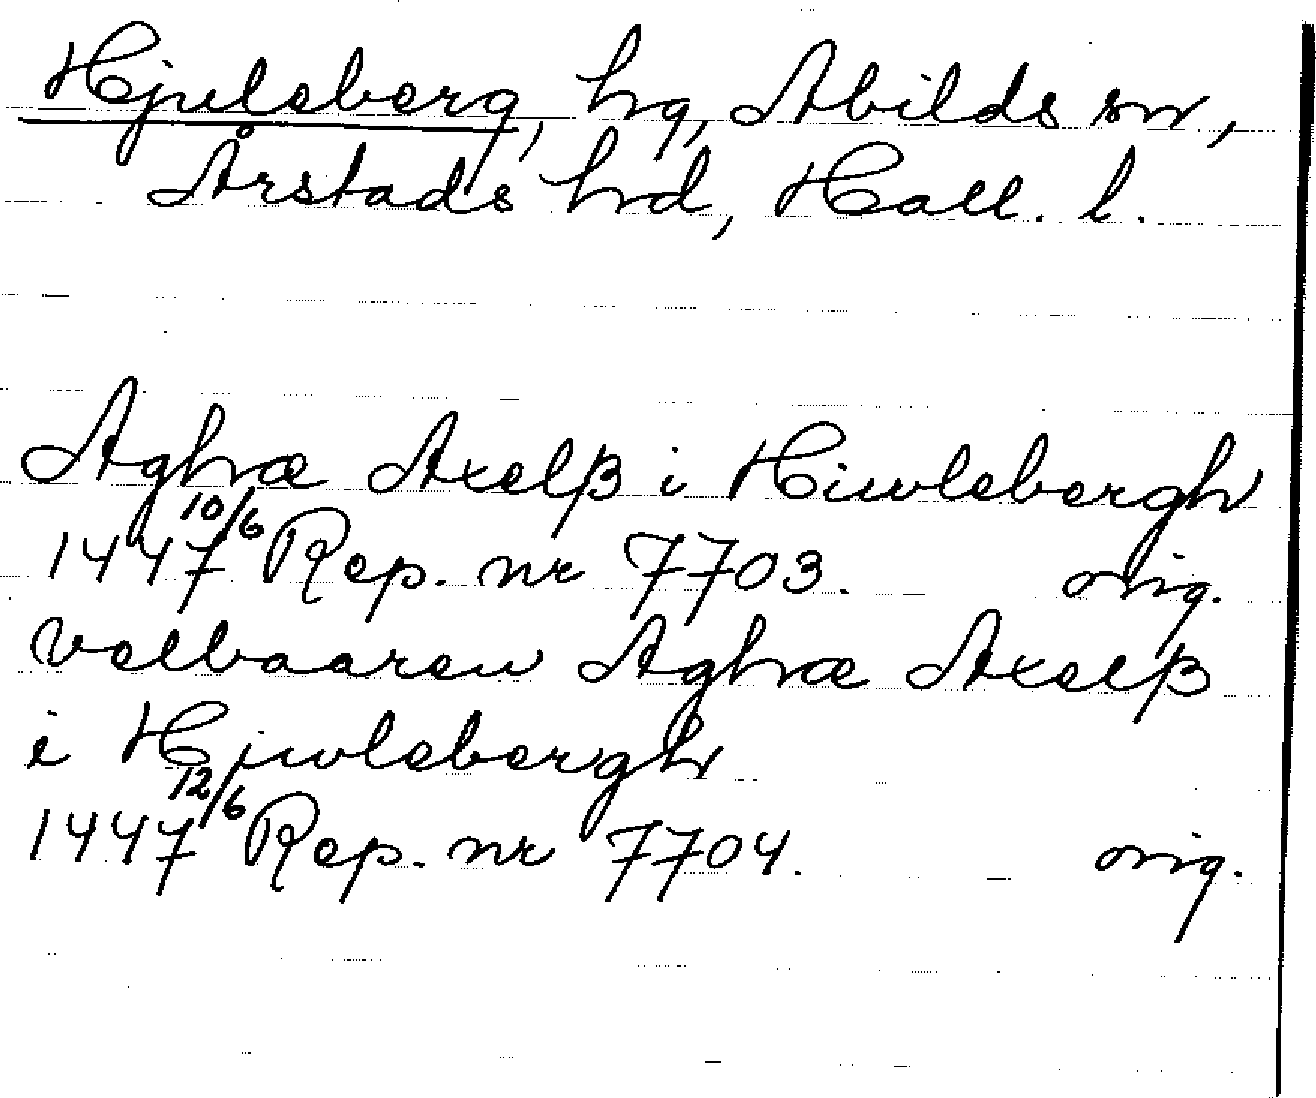 Hjuleberg, hg, Abilds sn,
Årstads hd, Hall. l.
Aghæ Axelß i Hiwlebergh
1447 10/6 Rep. nr 7703. orig.
velbaaren Aghæ Axelß
i Hjwlebergh
1447 12/6 Rep. nr 7704. orig.